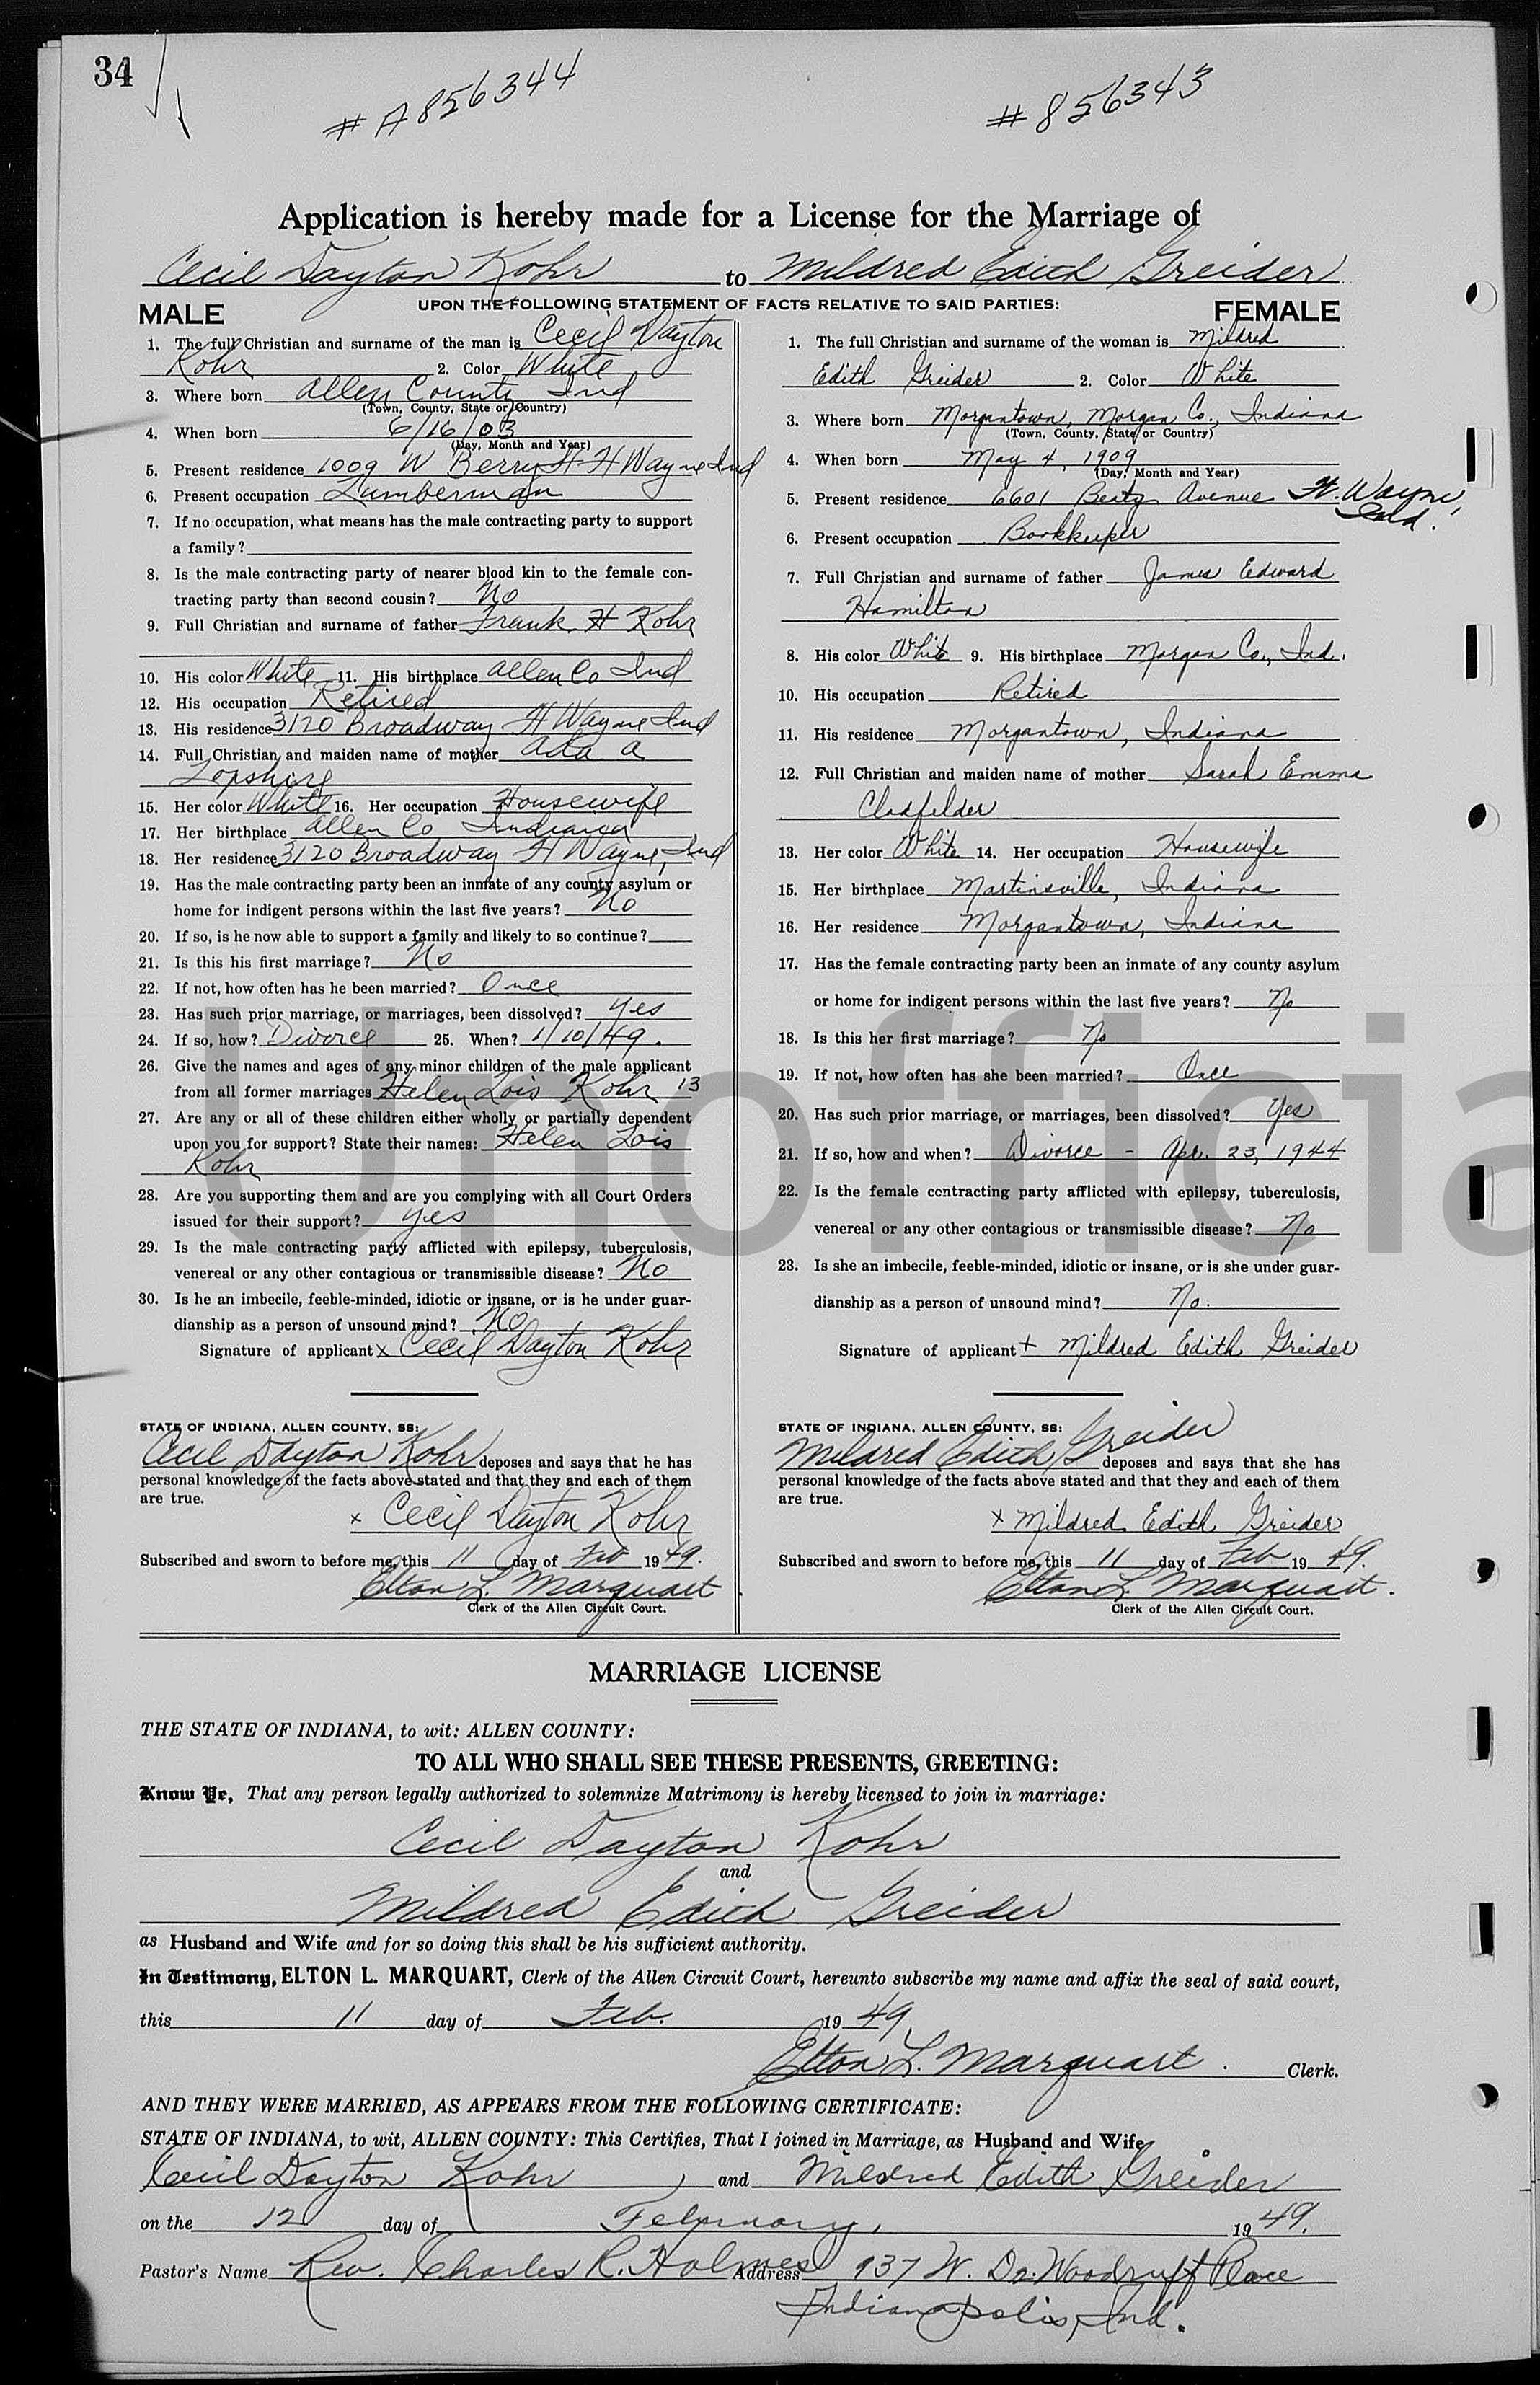 34
# A856344
# 856343
Application is hereby made for a License for the Marriage of
Cecil Dayton Kohr to Mildred Edith Greider
UPON THE FOLLOWING STATEMENT OF FACTS RELATIVE TO SAID PARTIES:
MALE
1. The full Christian and surname of the man is Cecil Dayton
Kohr 2. Color White
3. Where born Allen County Ind
(Town, County, State or Country)
4. When born 6/16/03
(Day, Month and Year)
5. Present residence 1009 W Berry St Ft Wayne Ind
6. Present occupation Lumberman
7. If no occupation, what means has the male contracting party to support
a family?
8. Is the male contracting party of nearer blood kin to the female con-
tracting party than second cousin? No
9. Full Christian and surname of father Frank H Kohr
10. His color White 11. His birthplace Allen Co Ind
12. His occupation Retired
13. His residence 3120 Broadway Ft Wayne Ind
14. Full Christian and maiden name of mother Ada A
Lopshire
15. Her color White 16. Her occupation Housewife
17. Her birthplace Allen Co Indiana
18. Her residence 3120 Broadway Ft Wayne, Ind
19. Has the male contracting party been an inmate of any county asylum or
home for indigent persons within the last five years? No
20. If so, is he now able to support a family and likely to so continue?
21. Is this his first marriage? No
22. If not, how often has he been married? Once
23. Has such prior marriage, or marriages, been dissolved? Yes
24. If so, how? Divorce 25. When? 1/10/49.
26. Give the names and ages of any minor children of the male applicant
from all former marriages Helen Lois Kohr 13
27. Are any or all of these children either wholly or partially dependent
upon you for support? State their names: Helen Lois
Kohr
28. Are you supporting them and are you complying with all Court Orders
issued for their support? yes
29. Is the male contracting party afflicted with epilepsy, tuberculosis,
venereal or any other contagious or transmissible disease? No
30. Is he an imbecile, feeble-minded, idiotic or insane, or is he under guar-
dianship as a person of unsound mind? No
Signature of applicant x Cecil Dayton Kohr
STATE OF INDIANA, ALLEN COUNTY, SS:
Cecil Dayton Kohr deposes and says that he has
personal knowledge of the facts above stated and that they and each of them
are true.
x Cecil Dayton Kohr
Subscribed and sworn to before me, this 11 day of Feb 1949.
Elton L. Marquart
Clerk of the Allen Circuit Court.
FEMALE
1. The full Christian and surname of the woman is Mildred
Edith Greider 2. Color White
3. Where born Morgantown, Morgan Co., Indiana
(Town, County, State or Country)
4. When born May 4, 1909
(Day, Month and Year)
5. Present residence 6601 Avenue Ft. Wayne,
Ind.
6. Present occupation Bookkeeper
7. Full Christian and surname of father James Edward
Hamilton
8. His color White 9. His birthplace Morgan Co., Ind.
10. His occupation Retired
11. His residence Morgantown, Indiana
12. Full Christian and maiden name of mother Sarah Emma
Clodfelder
13. Her color White 14. Her occupation Housewife
15. Her birthplace Martinsville, Indiana
16. Her residence Morgantown, Indiana
17. Has the female contracting party been an inmate of any county asylum
or home for indigent persons within the last five years? No
18. Is this her first marriage? No
19. If not, how often has she been married? Once
20. Has such prior marriage, or marriages, been dissolved? Yes
21. If so, how and when? Divorce - Apr. 23, 1944
22. Is the female contracting party afflicted with epilepsy, tuberculosis,
venereal or any other contagious or transmissible disease? No
23. Is she an imbecile, feeble-minded, idiotic or insane, or is she under guar-
dianship as a person of unsound mind? No.
Signature of applicant + Mildred Edith Greider
STATE OF INDIANA, ALLEN COUNTY, SS:
Mildred Edith Greider deposes and says that she has
personal knowledge of the facts above stated and that they and each of them
are true.
x Mildred Edith Greider
Subscribed and sworn to before me, this 11 day of Feb 1949.
Elton L. Marquart.
Clerk of the Allen Circuit Court.
Unofficia
MARRIAGE LICENSE
THE STATE OF INDIANA, to wit: ALLEN COUNTY:
TO ALL WHO SHALL SEE THESE PRESENTS, GREETING:
Know Ye, That any person legally authorized to solemnize Matrimony is hereby licensed to join in marriage:
Cecil Dayton Kohr
and
Mildred Edith Greider
as Husband and Wife and for so doing this shall be his sufficient authority.
In Testimony, ELTON L. MARQUART, Clerk of the Allen Circuit Court, hereunto subscribe my name and affix the seal of said court,
this 11 day of Feb. 1949
Elton L. Marquart. Clerk.
AND THEY WERE MARRIED, AS APPEARS FROM THE FOLLOWING CERTIFICATE:
STATE OF INDIANA, to wit, ALLEN COUNTY: This Certifies, That I joined in Marriage, as Husband and Wife
Cecil Dayton Kohr, and Mildred Edith Greider
on the 12 day of February, 1949.
Pastor's Name Rev. Charles R. Holmes Address 937 W. Dr. Woodruff Place
Indianapolis, Ind.